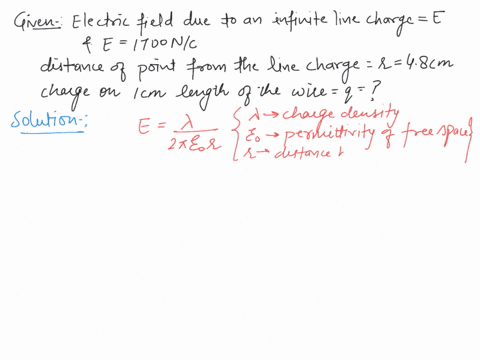 Given:- Electric field due to an infinite line charge = E
& E = 1700 N/c
distance of point from the line charge = r = 4.8cm
charge on 1cm length of the wire = q = ?
Solution:-
E = λ / 2πε₀r { λ → charge density
ε₀ → permittivity of free space }
r → distance